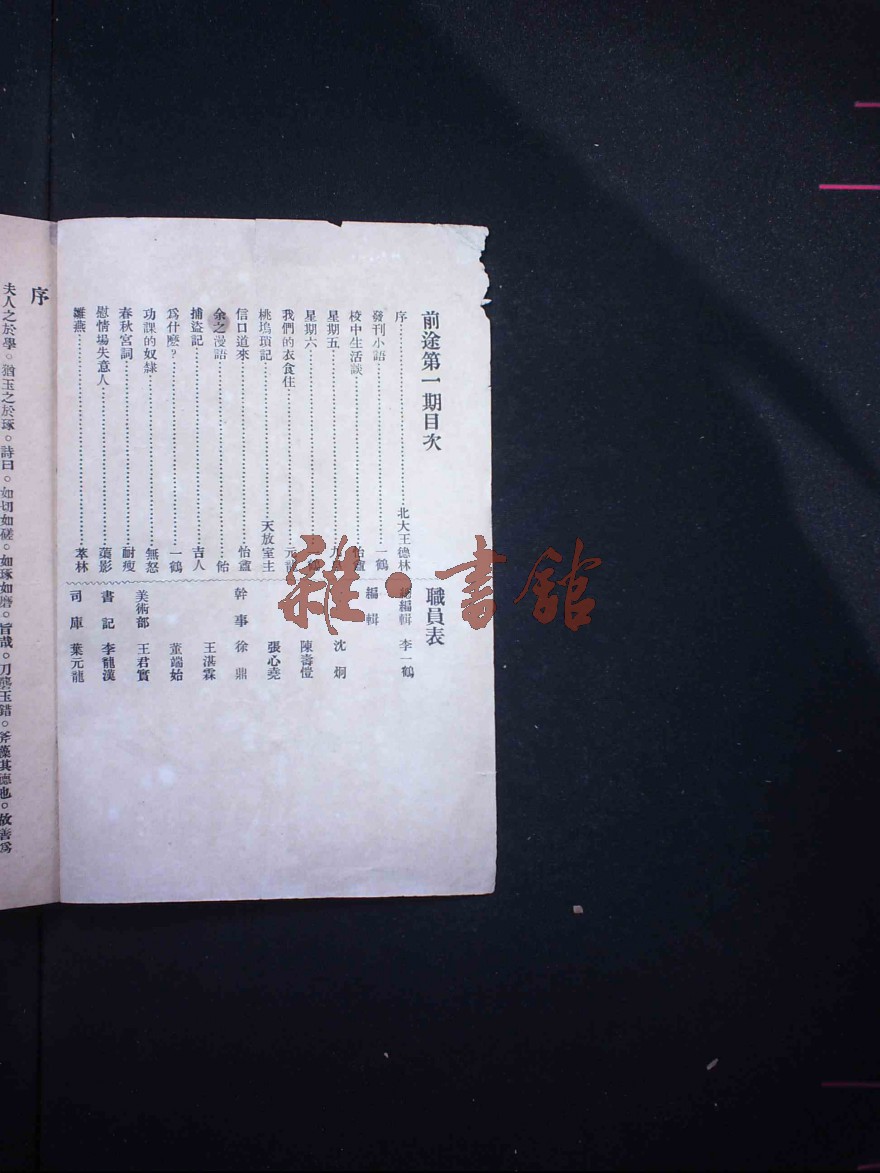 前途第一期目次
序……北大王德林
發刊小語……一鶴
校中生活談……怡盦
星期五……九
星期六……
我們的衣食住……元龍
桃塢瑣記……天放室主
信口道來……怡盦
余之漫語……飴
捕盜記……吉人
爲什麽?……一鶴
功課的奴隸……無怒
春秋宮詞……耐痩
慰情場失意人……蕅影
雛燕……萃林
職員表
總編輯 李一鶴
編輯 沈炯
陳壽愷
張心堯
幹事 徐鼎
王湛霖
董端始
美術部 王君實
書記 李龍漢
司庫 葉元龍
序
夫人之於學。猶玉之於琢。詩曰。如切如磋。如琢如磨。旨哉。刀礱玉錯。斧藻其德也。故善爲
雜·書館